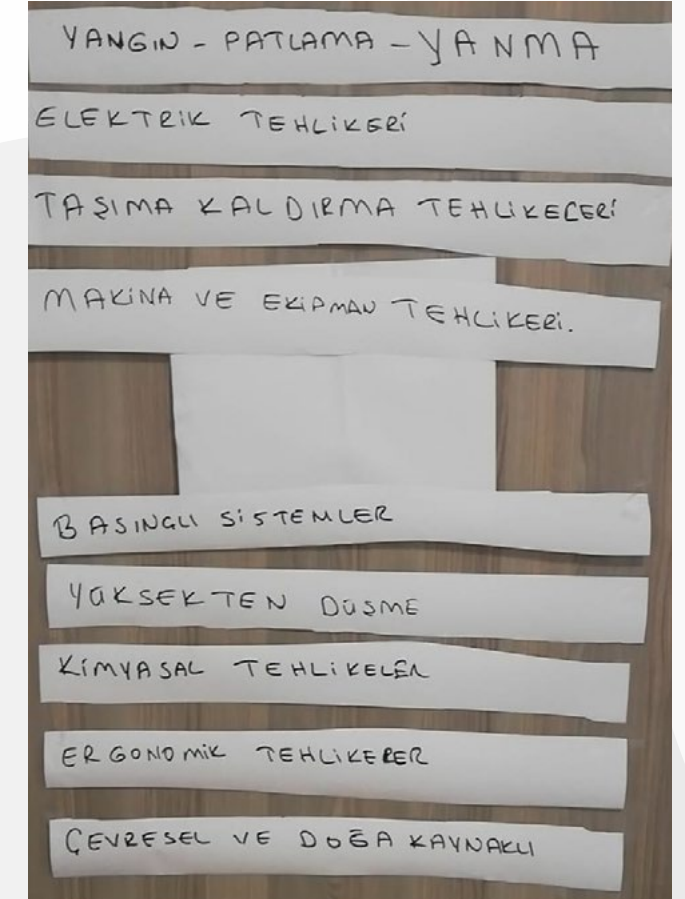 YANGIN - PATLAMA - YANMA
ELEKTRİK TEHLİKERİ
TAŞIMA KALDIRMA TEHLİKELERİ
MAKİNA VE EKİPMAN TEHLİKERİ.
BASINÇLI SİSTEMLER
YÜKSEKTEN DÜŞME
KİMYASAL TEHLİKELER
ERGONOMİK TEHLİKELER
ÇEVRESEL VE DOĞA KAYNAKLI